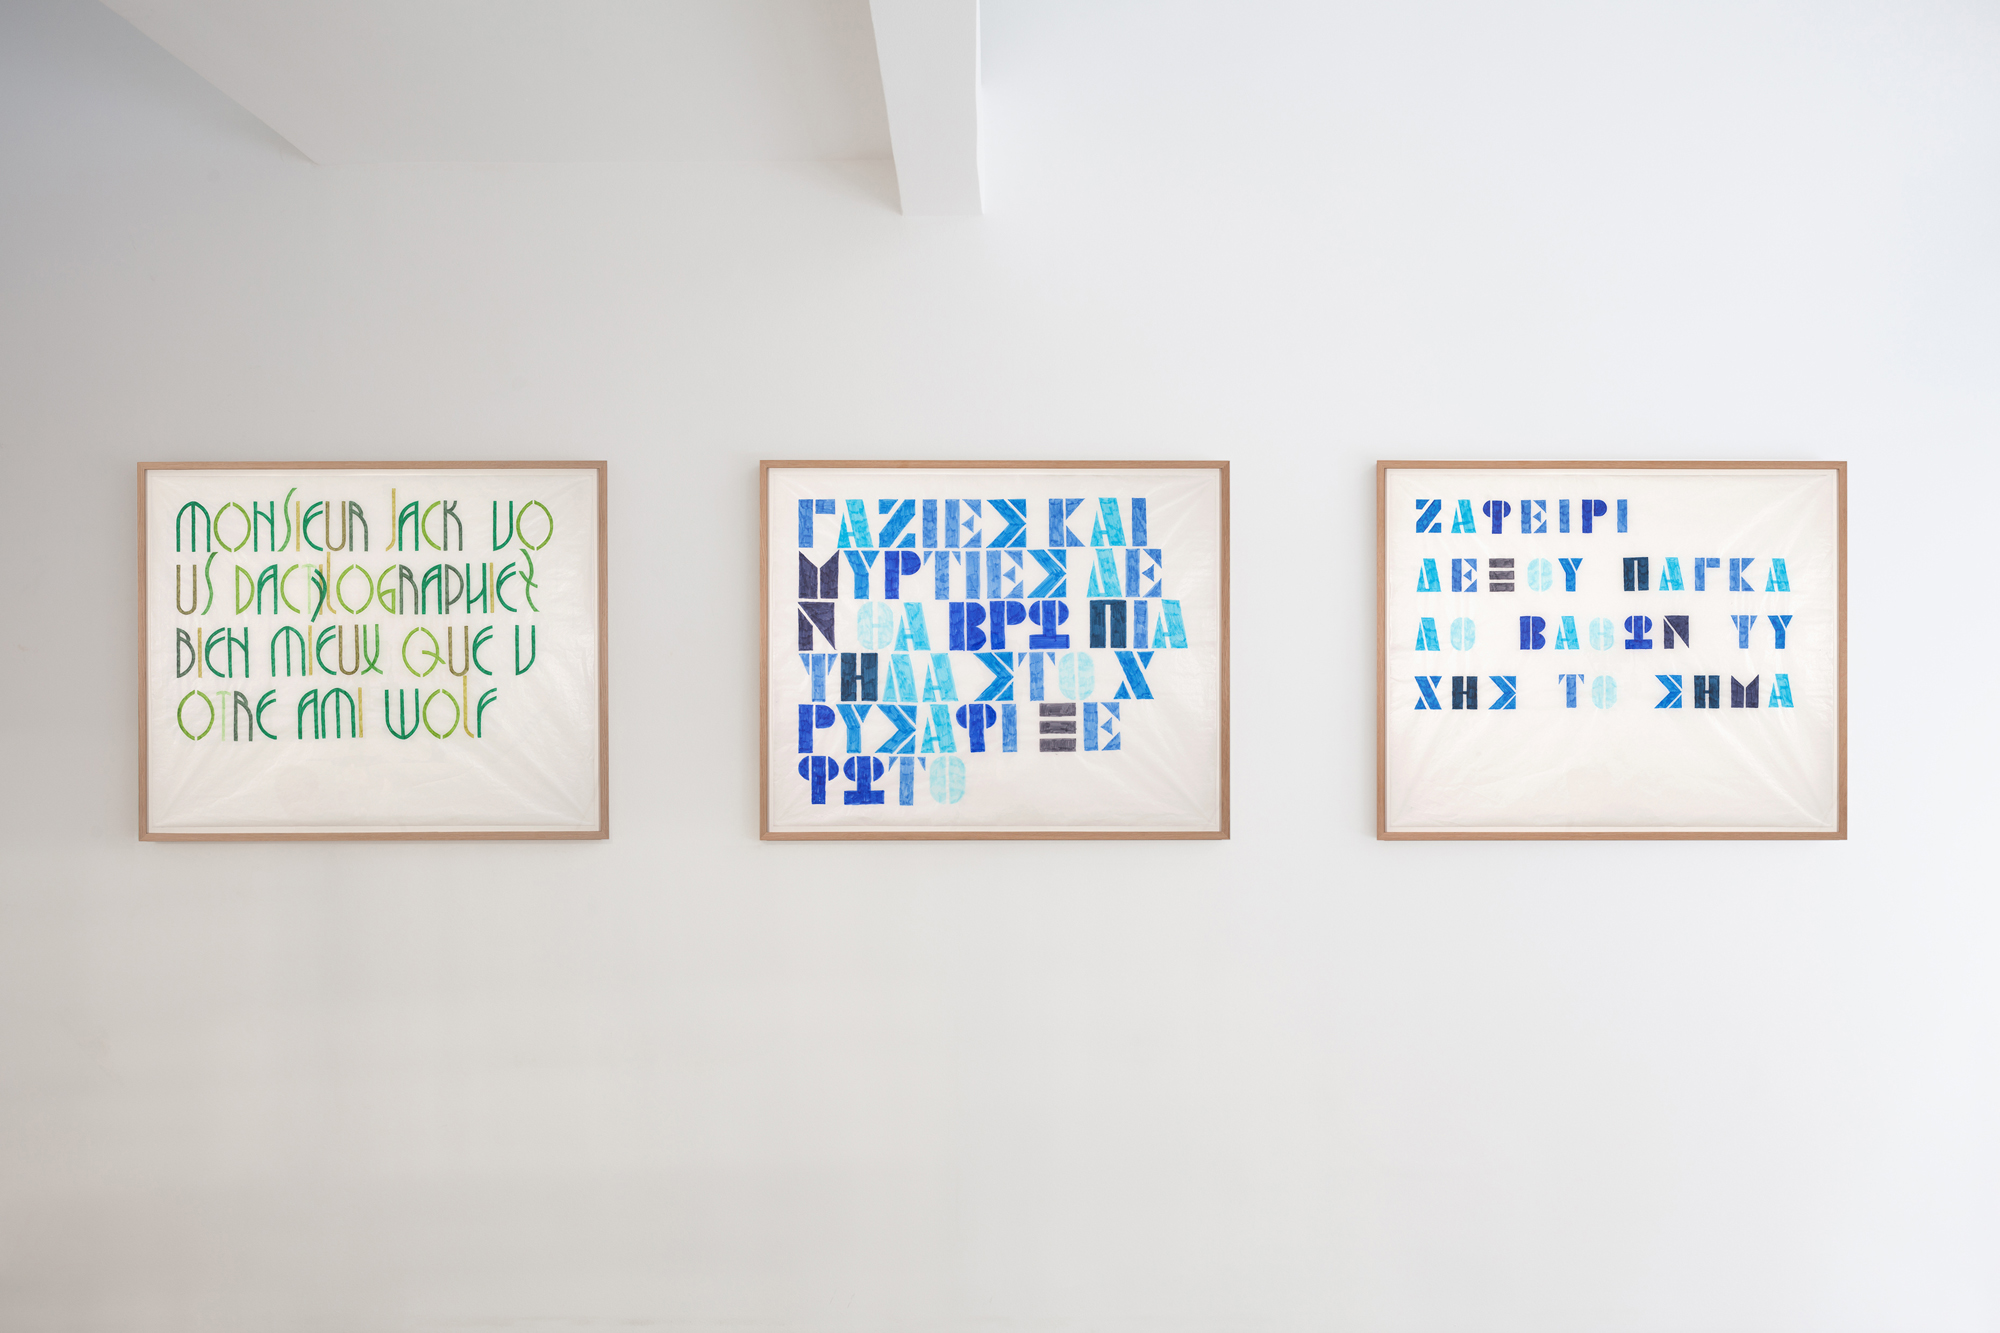 MONSIEUR JACK VO
US DACTYLOGRAPHIEZ
BIEN MIEUX QUE V
OTRE AMI WOLF
ΓΑΖΙΕΣ ΚΑΙ
ΜΥΡΤΙΕΣ ΔΕ
Ν ΘΑ ΒΡΩ ΠΙΑ
ΤΗΛΑ ΣΤΟ Χ
ΡΥΣΑΦΙ ΞΕ
ΦΩΤΟ
ΖΑΦΕΙΡΙ
ΔΕΞΟΥ ΠΑΓΚΑ
ΛΟ ΒΑΘΩΝ ΤΥ
ΧΗΣ ΤΟ ΣΗΜΑ